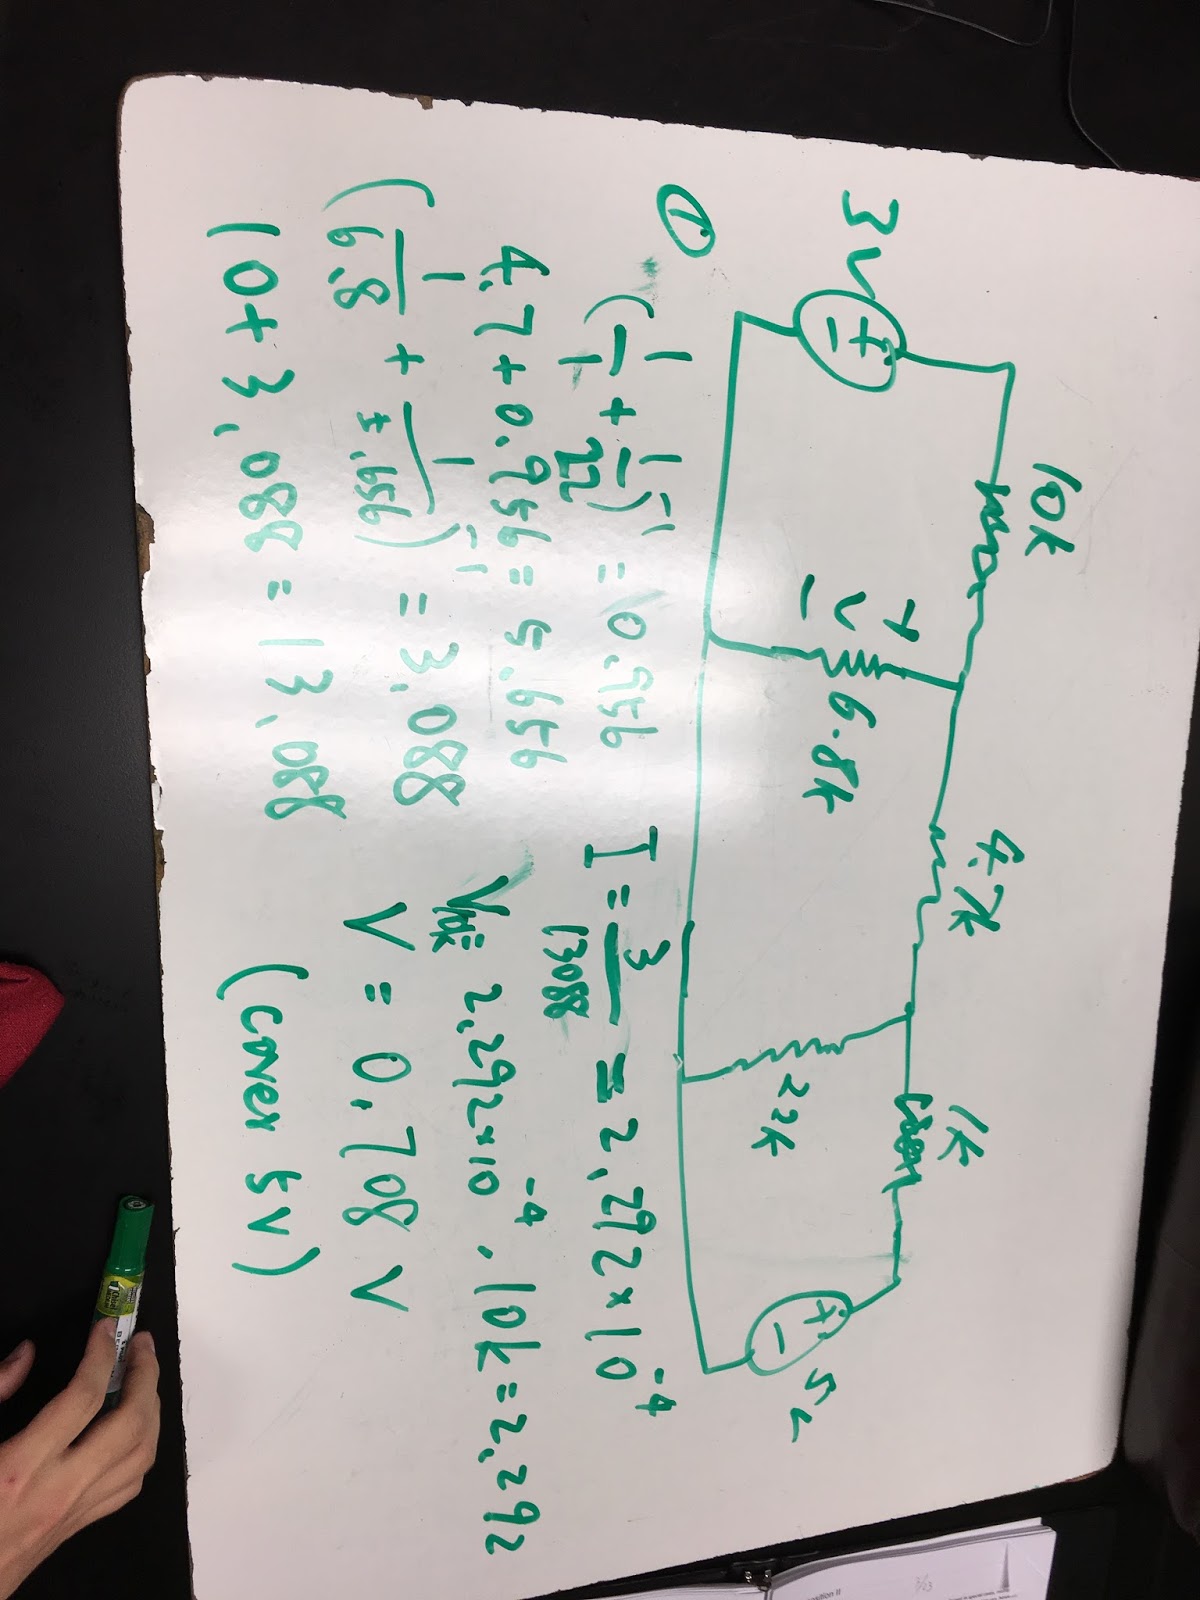 10k
4.7k
1k
3V
+
-
+
V
-
6.8k
22k
+
-
5V
①
(1/1 + 1/22)^-1 = 0.956
4.7 + 0.956 = 5.656
(1/6.8 + 1/5.656)^-1 = 3.088
10 + 3.088 = 13.088
I = 3/13088 = 2.292×10^-4
V10k = 2.292×10^-4 · 10k = 2.292
V = 0.708 V
(cover 5V)